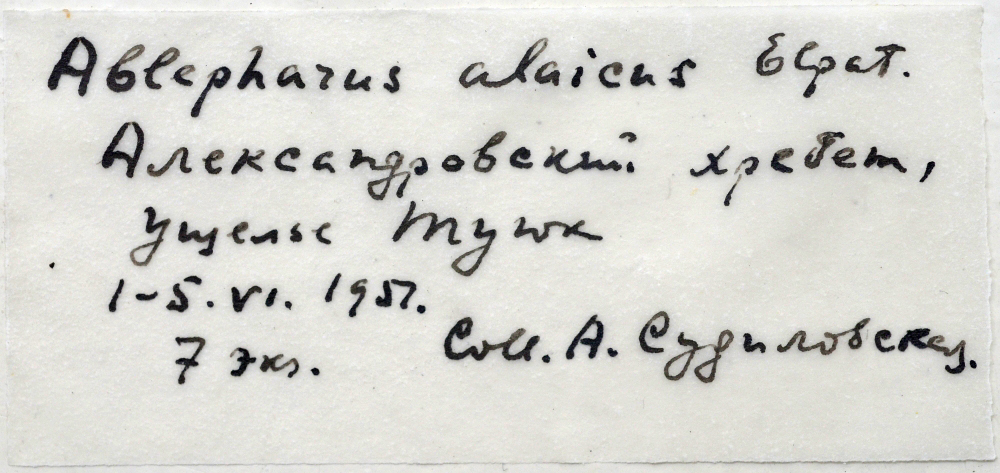 Ablepharus alaicus Elpat.
Александровский хребет,
ущелье Туюк
1-5.VI. 1957.
7 экз.
Coll. А. Судиловская.